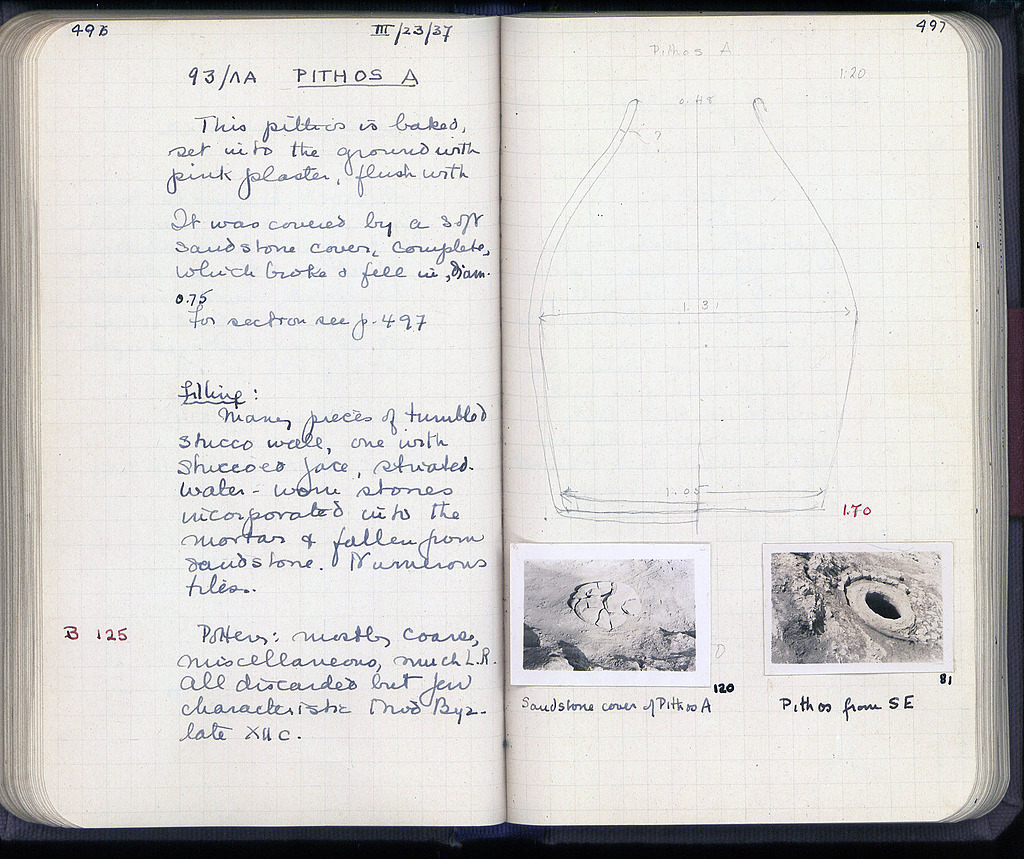 496
III/23/37
93/ΛA PITHOS A
This pithos is baked,
set into the ground with
pink plaster, flush with
It was covered by a soft
sandstone cover, complete,
which broke & fell in, diam.
0.75
For section see p. 497
Filling:
Many pieces of tumbled
stucco wall, one with
stuccoed face, striated.
water-worn stones
incorporated into the
mortar & fallen from
sandstone. Numerous
tiles.
B 125
Pottery: mostly coarse,
miscellaneous, much L.R.
All discarded but few
characteristic Byz-
late XII c.
497
Pithos A
1:20
0.48
?
1.31
1.05
1.70
120
Sandstone cover of Pithos A
81
Pithos from SE